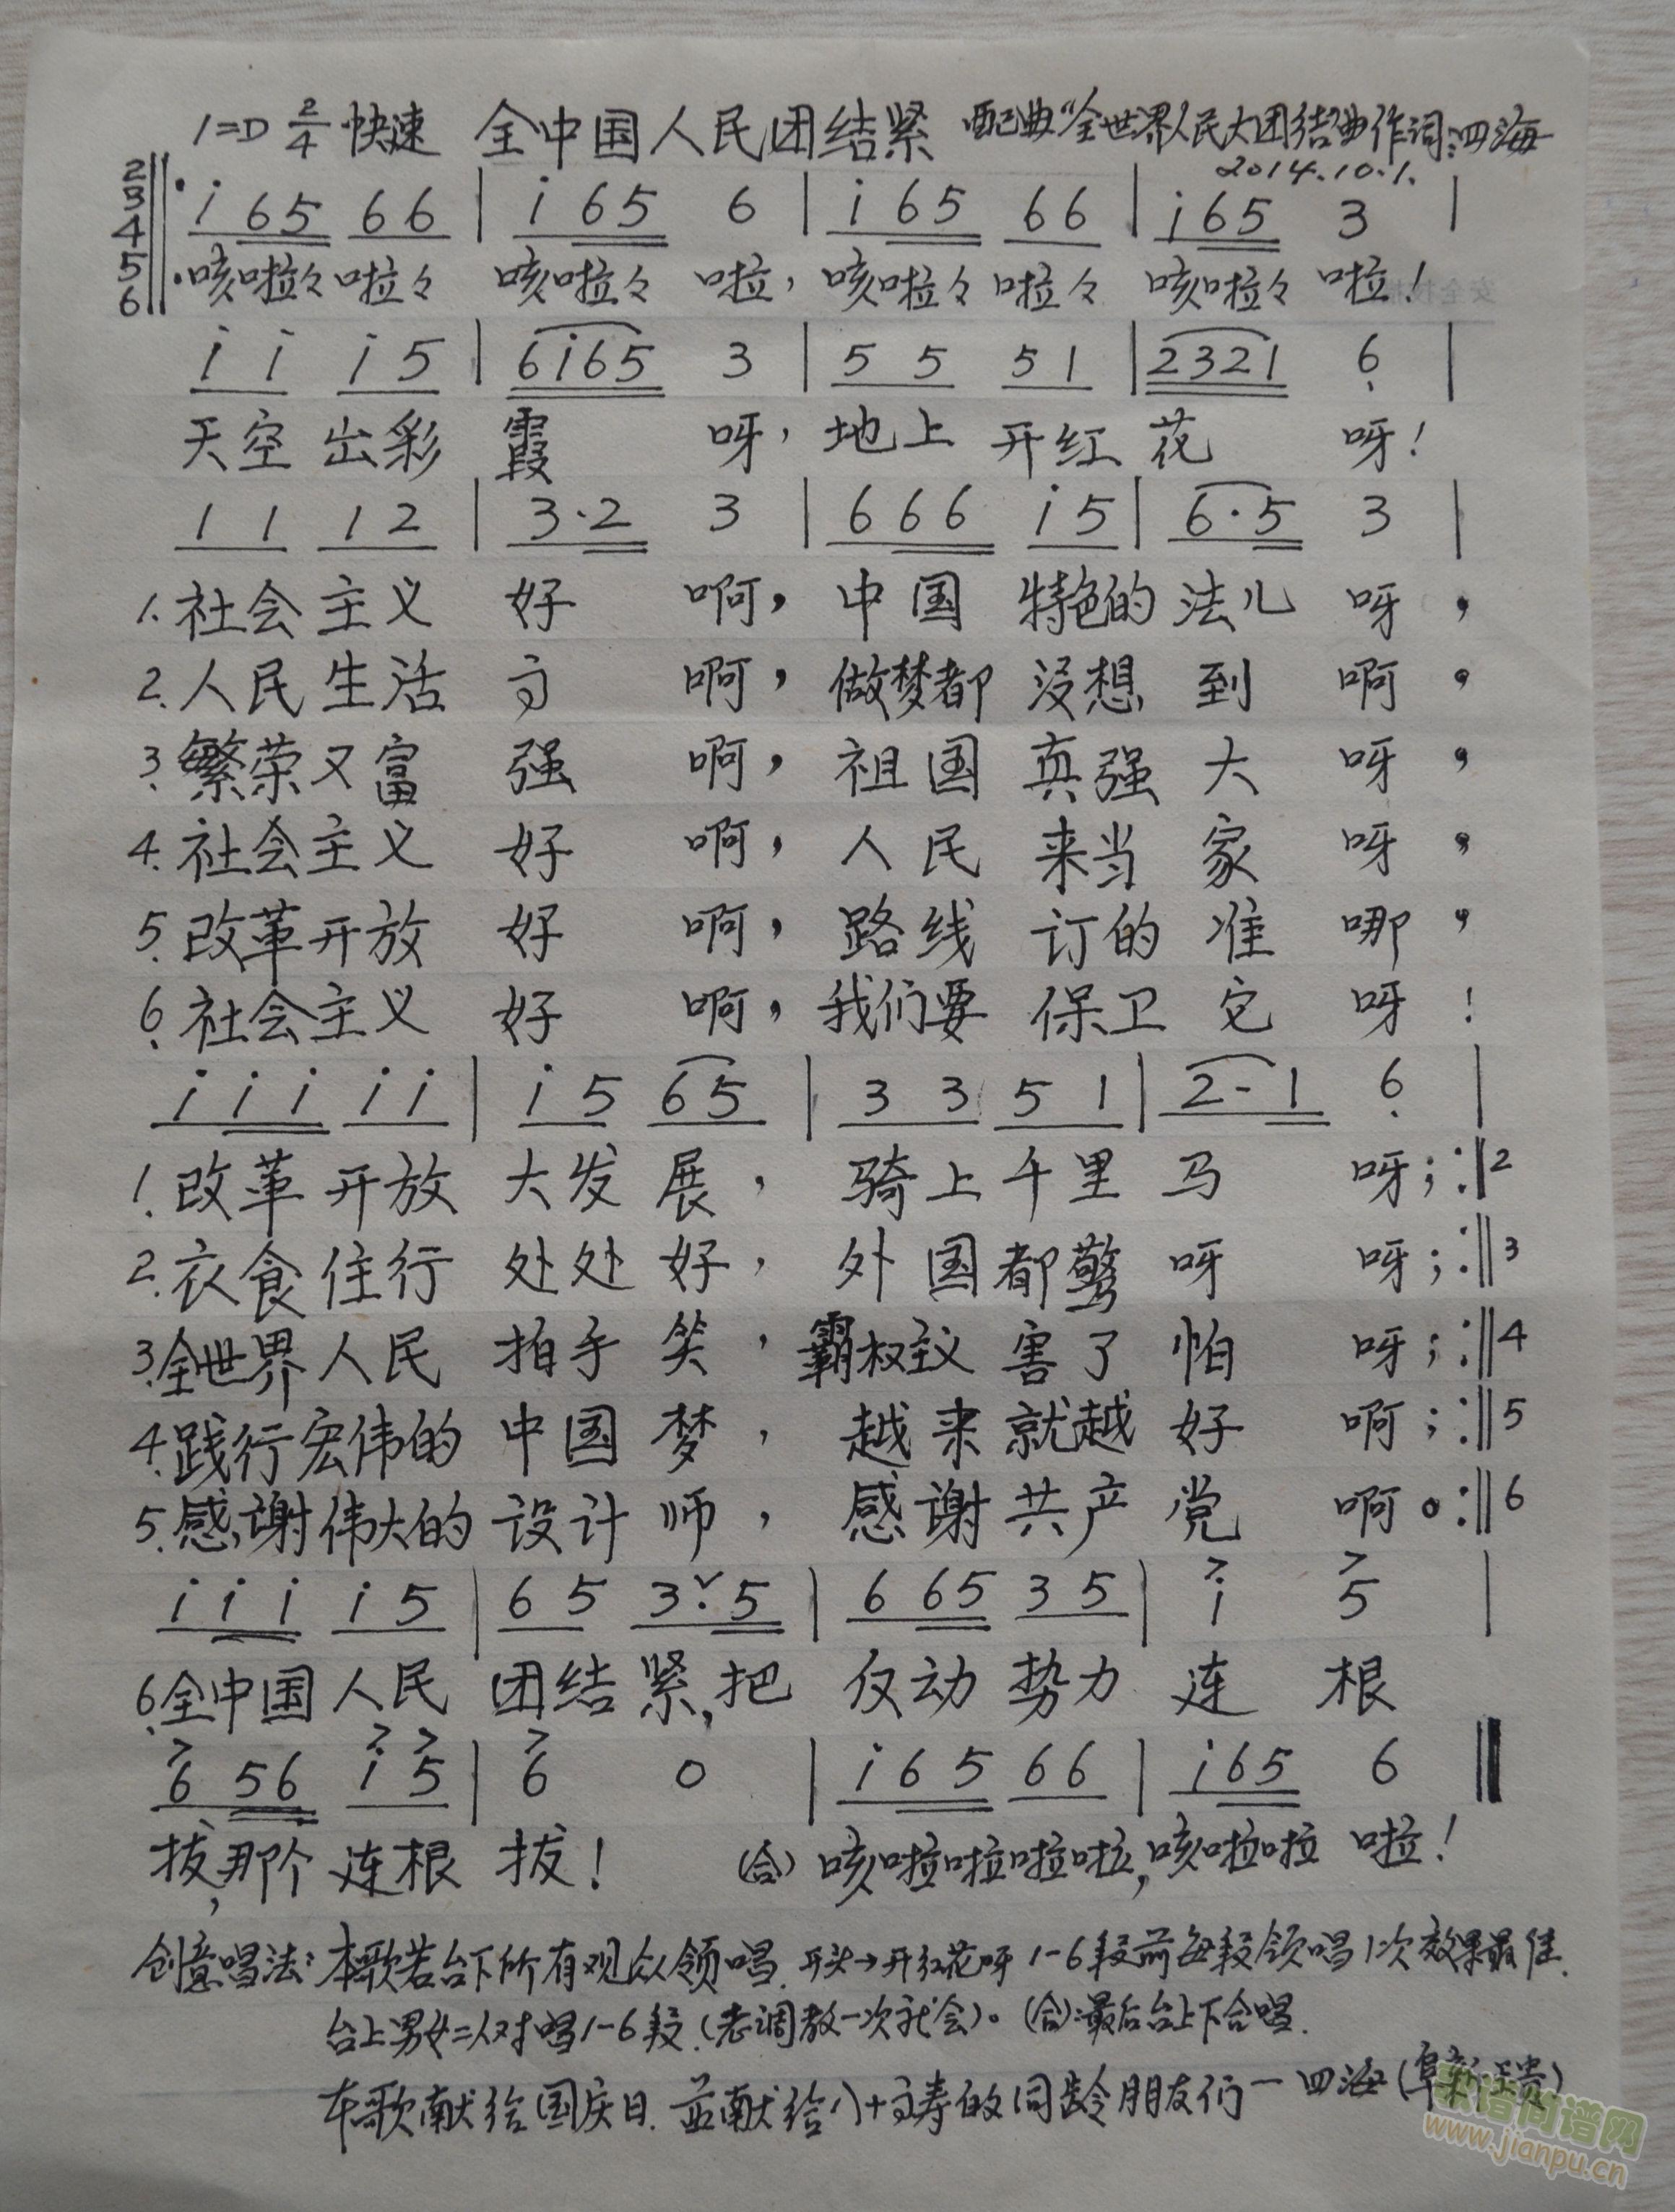 1=D 2/4 快速 全中国人民团结紧 配曲"全世界人民大团结"曲 作词:四海
2014.10.1.
2 3 4 5 6 ‖: i 6 5 6 6 | i 6 5 6 | i 6 5 6 6 | i 6 5 3 |
咳啦々啦々 咳啦々 啦, 咳啦々啦々 咳啦々 啦!
i i i 5 | 6 i 6 5 3 | 5 5 5 1 | 2 3 2 1 6̣ |
天空出彩霞 呀, 地上开红花 呀!
1 1 1 2 | 3·2 3 | 6 6 6 i 5 | 6·5 3 |
1.社会主义好 啊, 中国特色的法儿呀,
2.人民生活 啊, 做梦都没想到啊,
3.繁荣又富强 啊, 祖国真强大呀,
4.社会主义好 啊, 人民来当家呀,
5.改革开放好 啊, 路线订的准哪,
6.社会主义好 啊, 我们要保卫它呀!
i i i i i | i 5 6 5 | 3 3 5 1 | 2-1 6̣ |
1.改革开放大发展, 骑上千里马 呀; :‖2
2.衣食住行处处好, 外国都惊呀 呀; :‖3
3.全世界人民拍手笑, 霸权主义害了怕 呀; :‖4
4.践行宏伟的中国梦, 越来就越好 啊; :‖5
5.感谢伟大的设计师, 感谢共产党 啊。:‖6
i i i i 5 | 6 5 3·ˇ5 | 6 6 5 3 5 | i 5 |
6.全中国人民团结紧,把 仅动势力连根
6 5 6 i 5 | 6 0 | i 6 5 6 6 | i 6 5 6 ‖
拔,那个连根拔! (合) 咳啦啦啦啦,咳啦啦 啦!
创意唱法: 本歌若台下所有观众领唱. 开头→开红花呀 1-6段前每段领唱1次效果最佳.
台上男女二人对唱1-6段.(老调教一次就会)。(合):最后台上下合唱.
本歌献给国庆日. 并献给八十高寿的同龄朋友们 — 四海(阜新
www.jianpu.cn